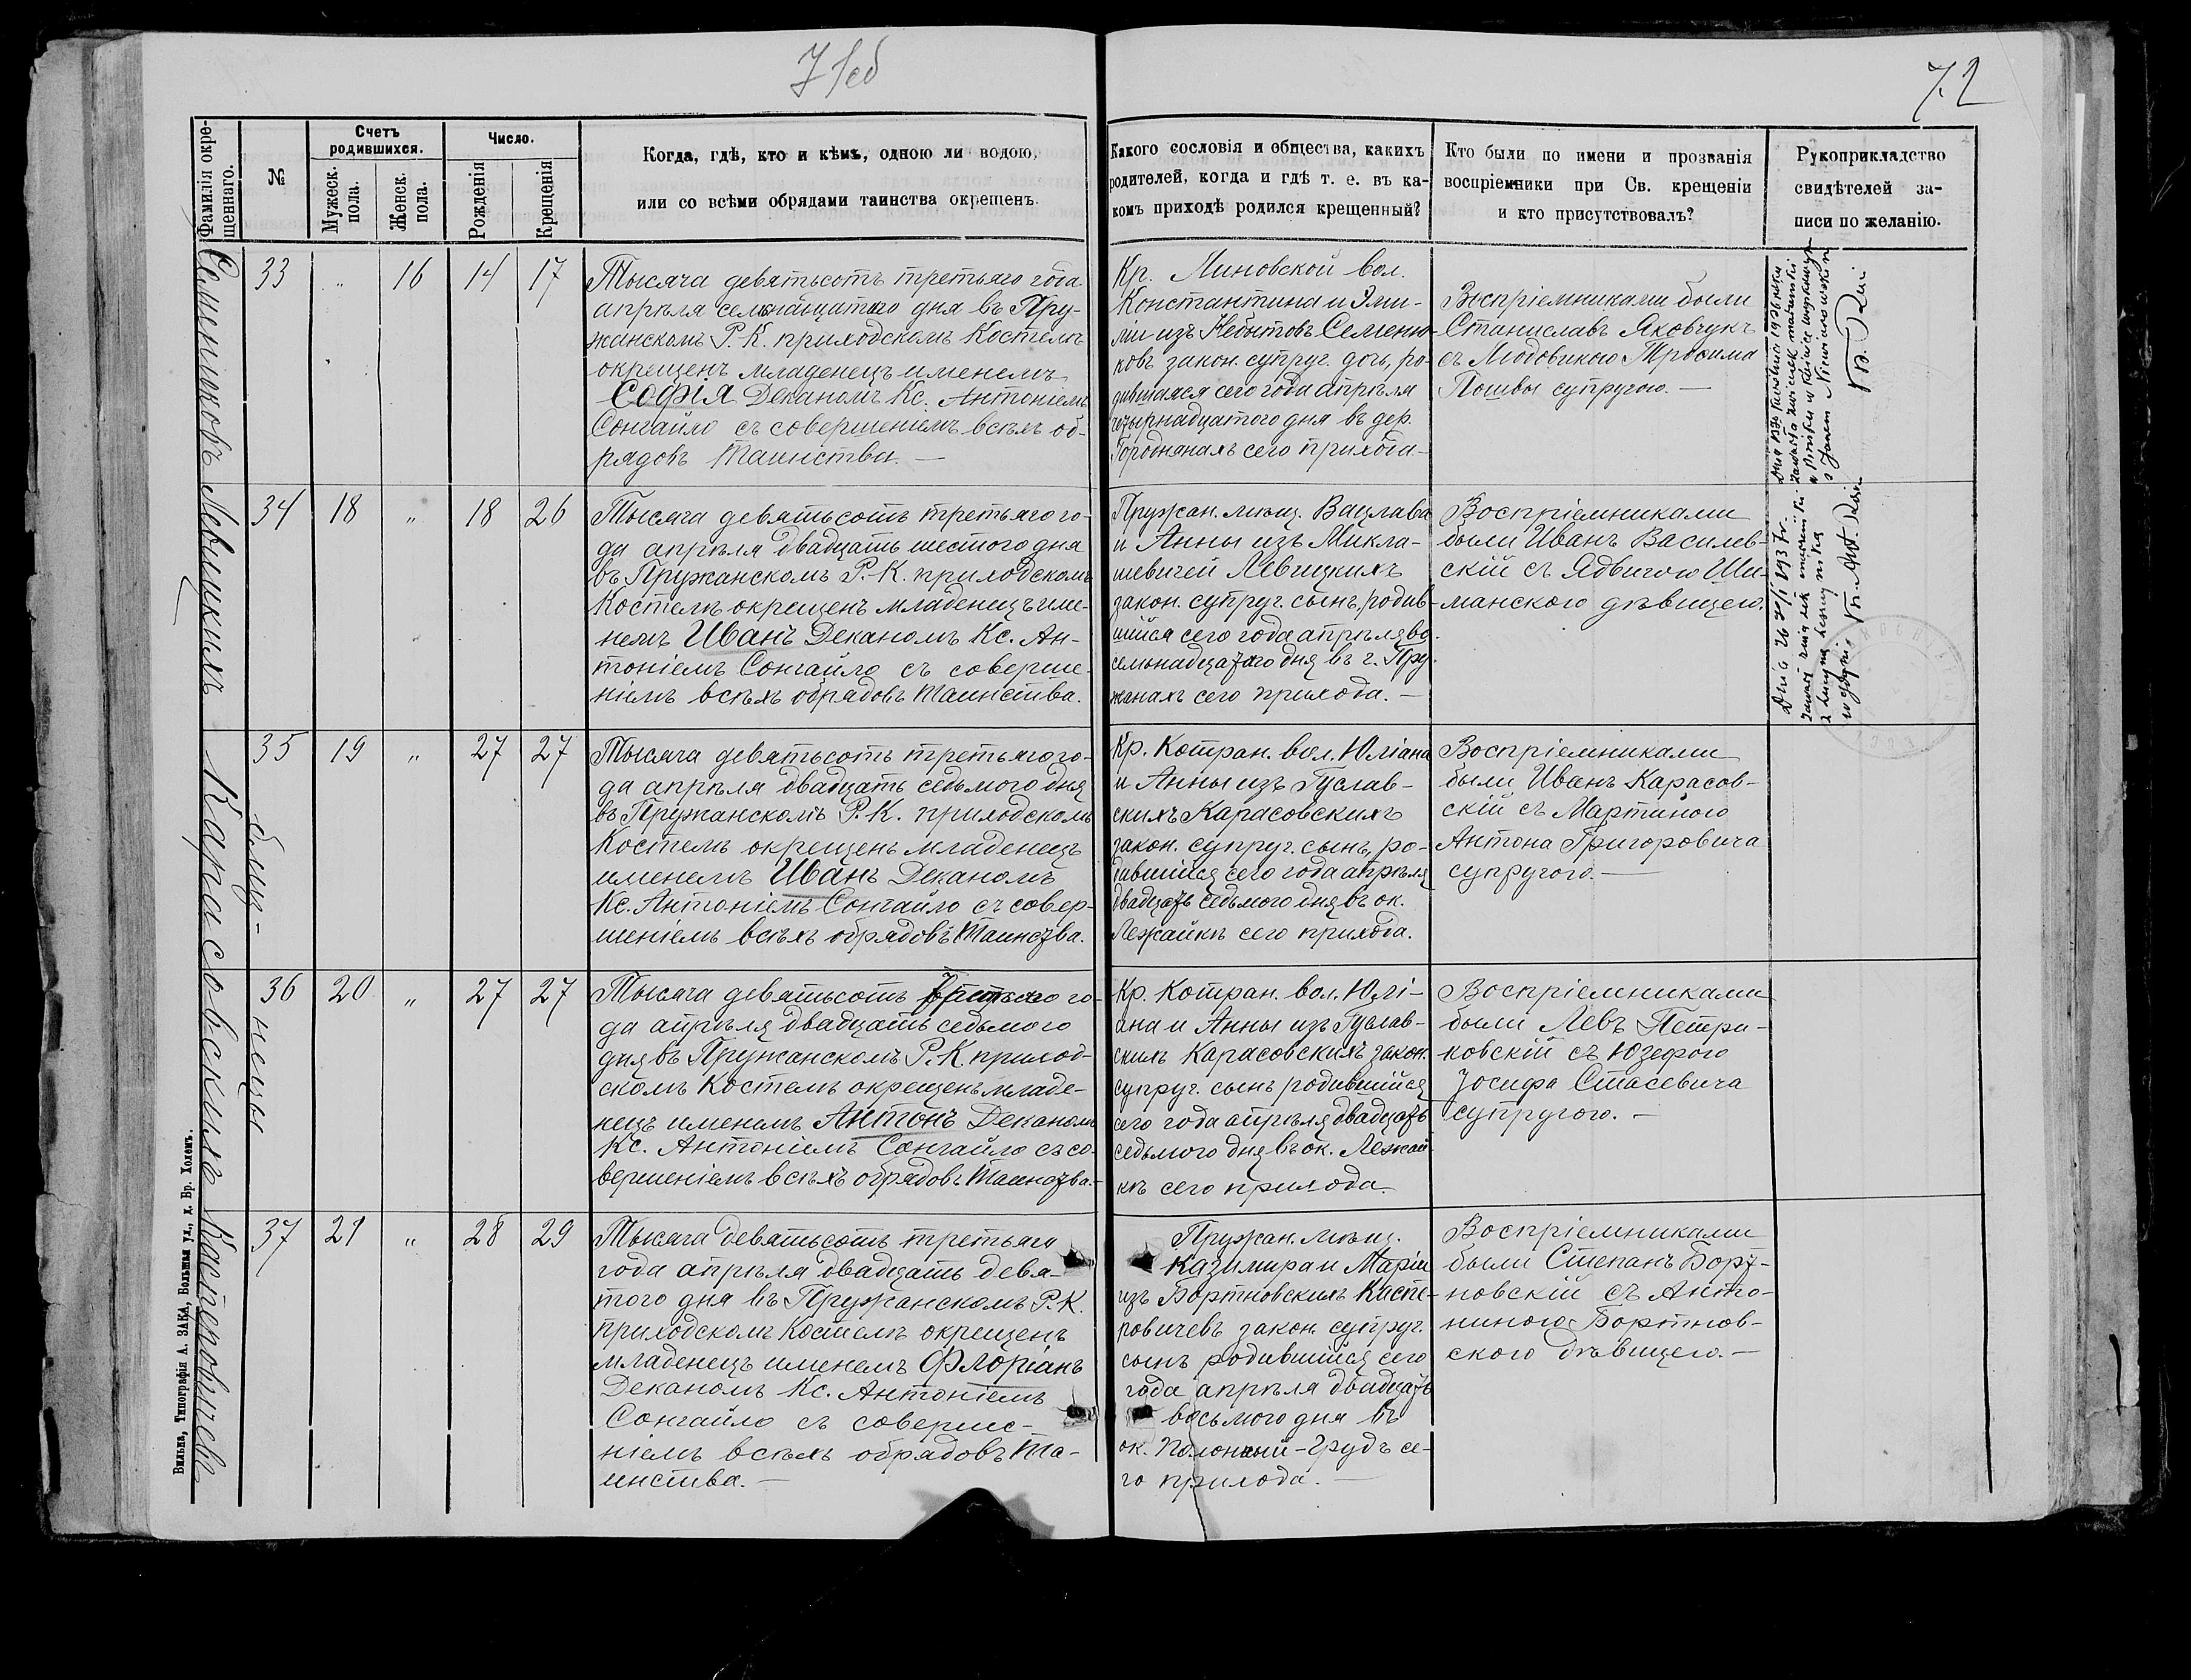 71об
72
Фамилія окре-
щеннаго.
№
Счетъ
родившихся.
Мужеск.
пола.
Женск.
пола.
Число.
Рожденія
Крещенія
Когда, гдѣ, кто и кѣмъ, одною ли водою,
или со всѣми обрядами таинства окрещенъ.
Какого сословія и общества, какихъ
родителей, когда и гдѣ т. е. въ ка-
комъ приходѣ родился крещенный?
Кто были по имени и прозванія
воспріемники при Св. крещеніи
и кто присутствовалъ?
Рукоприкладство
свидѣтелей за-
писи по желанію.
Семениковъ
33 „ 16 14 17
Тысяча девятьсотъ третьяго года
апрѣля семьнадцатаго дня въ Пру-
жанскомъ Р.-К. приходскомъ Костелѣ
окрещенъ младенецъ именемъ
Софія Деканомъ Кс. Антоніемъ
Сонгайло съ совершеніемъ всѣхъ об-
рядовъ Таинства. —
Кр. Линовской вол.
Константина и Эми-
ліи изъ Небытовъ Семени-
ковъ закон. супруг. дочь, ро-
дившаяся сего года апрѣля
четырнадцатого дня въ дер.
Городнянахъ сего прихода —
Воспріемниками были
Станиславъ Яковчукъ
съ Людовикою Трофима
Пошвы супругою. —
Левицкихъ
34 18 „ 18 26
Тысяча девятьсотъ третьяго го-
да апрѣля двадцать шестого дня
въ Пружанскомъ Р.-К. приходскомъ
Костелѣ окрещенъ младенецъ име-
немъ Иванъ Деканомъ Кс. Ан-
тоніемъ Сонгайло съ соверше-
ніемъ всѣхъ обрядовъ Таинства.
Пружан. мѣщ. Вацлава
и Анны изъ Микла-
шевичей Левицкихъ
закон. супруг. сынъ, родив-
шійся сего года апрѣля во-
семьнадцатаго дня въ г. Пру-
жанахъ сего прихода. —
Воспріемниками
были Иванъ Василев-
скій съ Ядвигою Ши-
манскою дѣвицею.
Карасовскихъ
близ-
нецы
35 19 „ 27 27
Тысяча девятьсотъ третьяго го-
да апрѣля двадцать седьмого дня
въ Пружанскомъ Р.К. приходскомъ
Костелѣ окрещенъ младенецъ
именемъ Иванъ Деканомъ
Кс. Антоніемъ Сонгайло съ совер-
шеніемъ всѣхъ обрядовъ Таинства.
Кр. Котран. вол. Юліана
и Анны изъ Гуслав-
скихъ Карасовскихъ
закон. супруг. сынъ, ро-
дившійся сего года апрѣля
двадцать седьмого дня въ ок.
Лежайкѣ сего прихода.
Воспріемниками
были Иванъ Карасов-
скій съ Мартиною
Антона Григоровича
супругою. —
36 20 „ 27 27
Тысяча девятьсотъ третьяго го-
да апрѣля двадцать седьмого
дня въ Пружанскомъ Р.К. приход-
скомъ Костелѣ окрещенъ младе-
нецъ именемъ Антонъ Деканомъ
Кс. Антоніемъ Сонгайло съ со-
вершеніемъ всѣхъ обрядовъ Таинства. —
Кр. Котран. вол. Юлі-
ана и Анны изъ Гуслав-
скихъ Карасовскихъ закон.
супруг. сынъ родившійся
сего года апрѣля двадцать
седьмого дня въ ок. Лежай-
кѣ сего прихода.
Воспріемниками
были Левъ Петри-
ковскій съ Юзефою
Іосифа Стасевича
супругою. —
Касперовичевъ
37 21 „ 28 29
Тысяча девятьсотъ третьяго
года апрѣля двадцать девя-
того дня въ Пружанскомъ Р.К.
приходскомъ Костелѣ окрещенъ
младенецъ именемъ Флоріанъ
Деканомъ Кс. Антоніемъ
Сонгайло съ соверше-
ніемъ всѣхъ обрядовъ Та-
инства. —
Пружан. мѣщ.
Казимира и Маріи
изъ Бортновскихъ Каспе-
ровичевъ закон. супруг.
сынъ родившійся сего
года апрѣля двадцать
восьмого дня въ
ок. Полонный-Грудъ се-
го прихода. —
Воспріемниками
были Степанъ Борт-
новскій съ Анто-
ниною Бортнов-
скою дѣвицею. —
Вильна, Типографія А. ЗАКА, Большая ул., д. Бр. Холемъ.